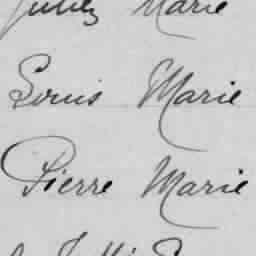 Julien Marie
Louis Marie
Pierre Marie